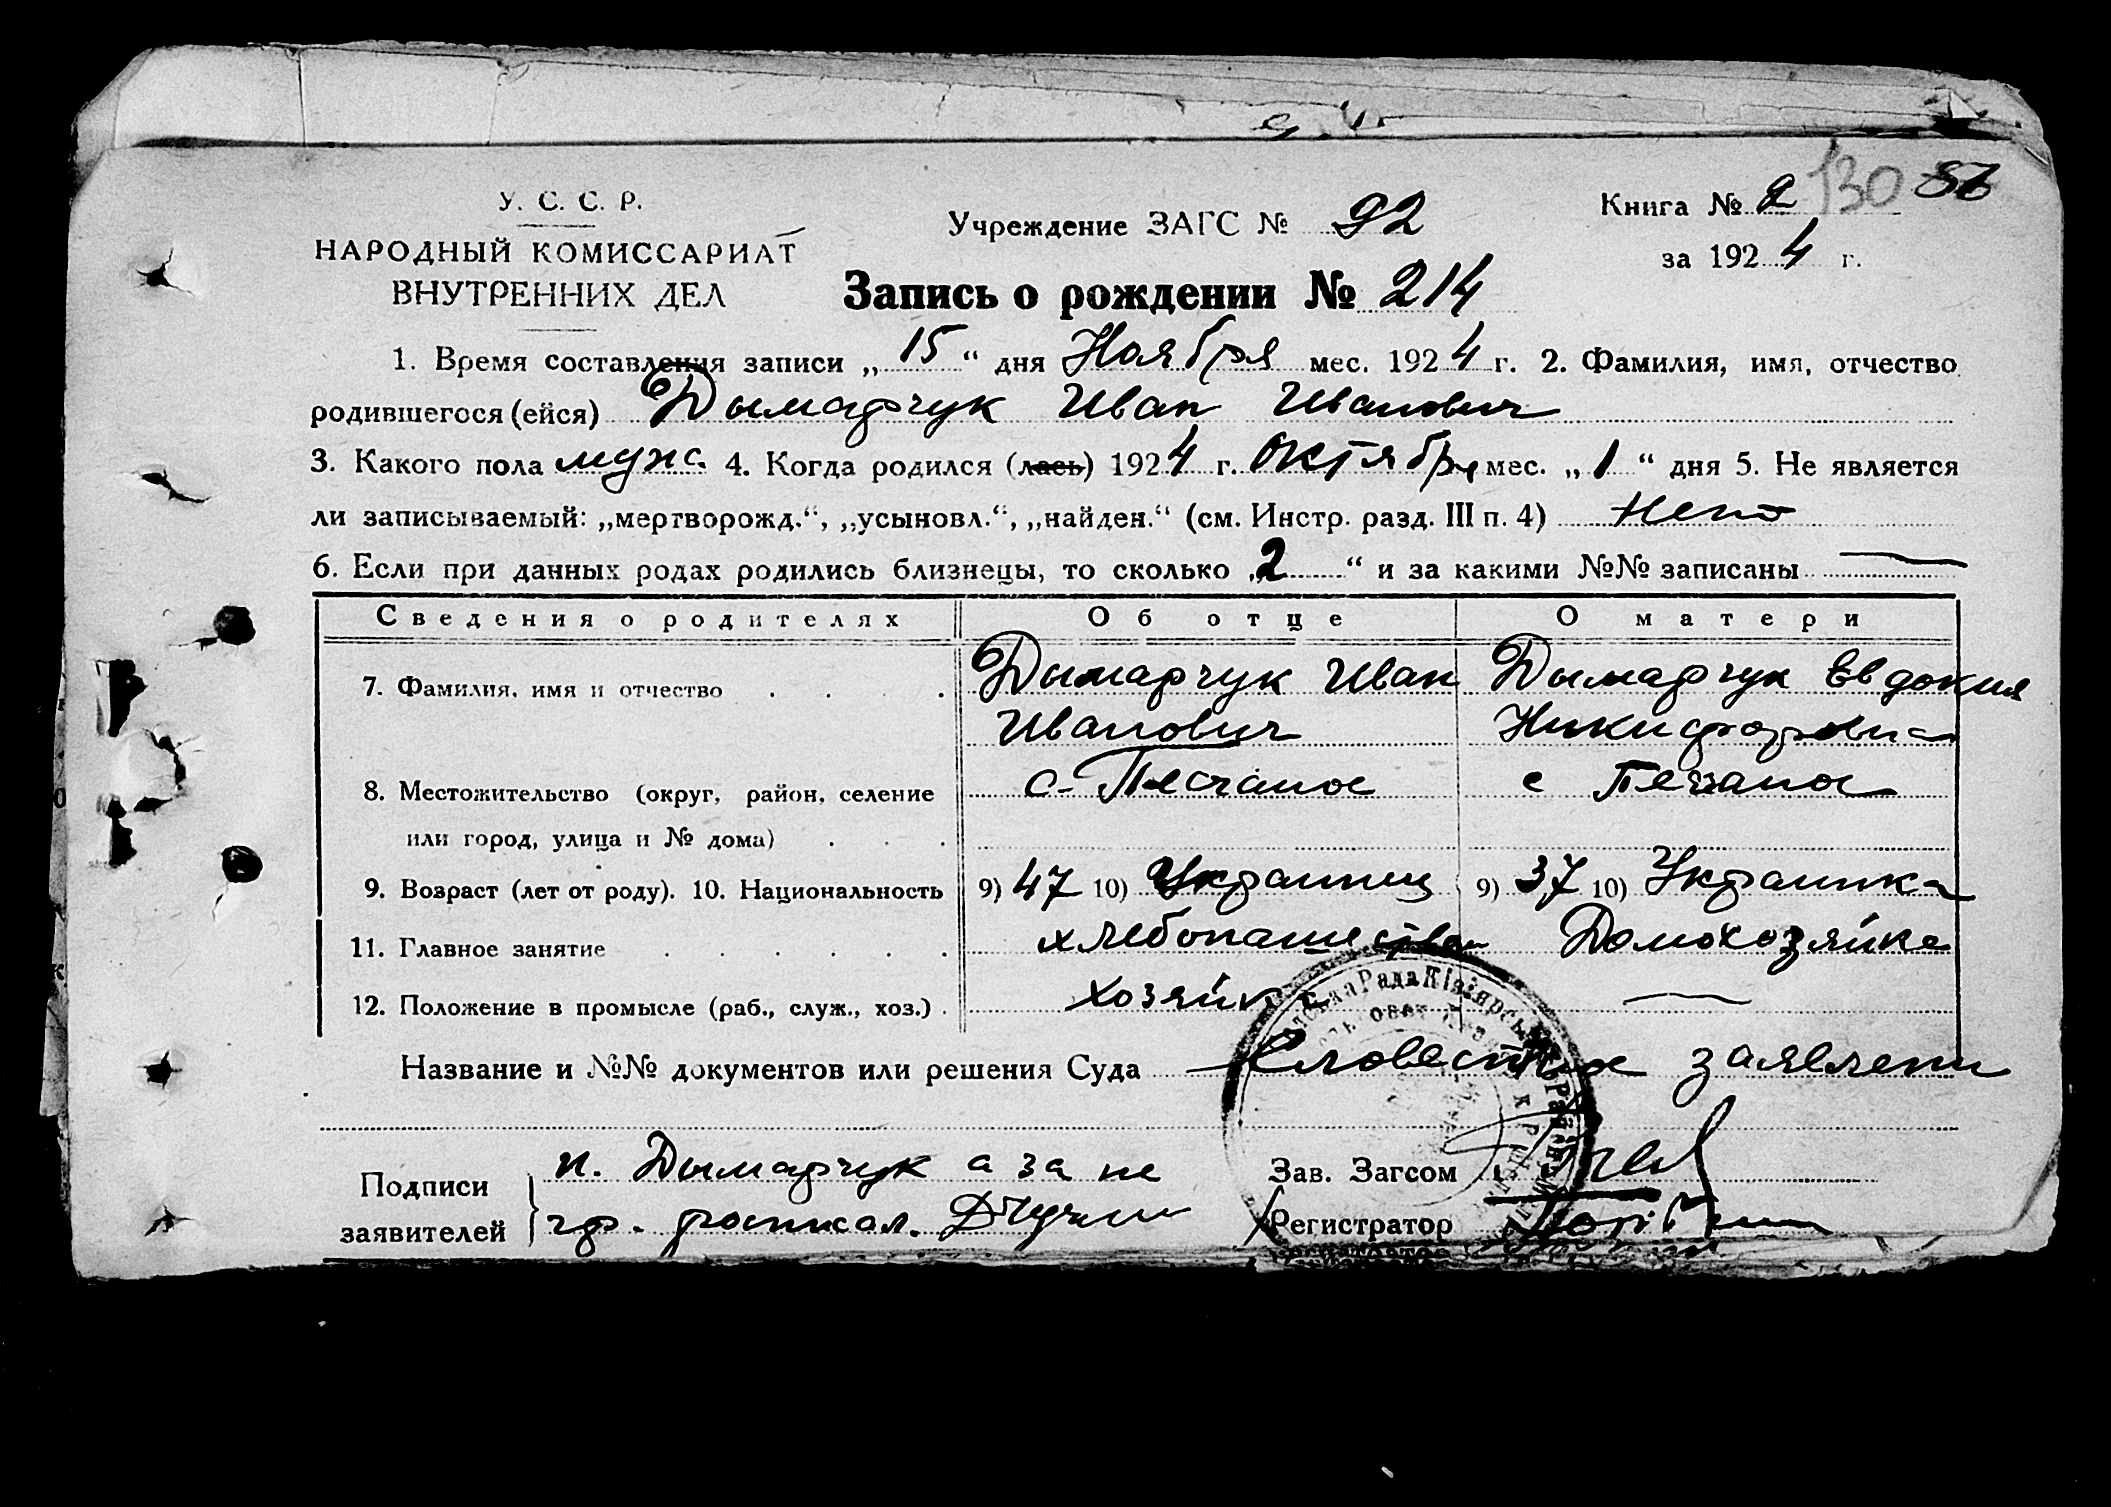 130 87
У. С. С. Р.
НАРОДНЫЙ КОМИССАРИАТ
ВНУТРЕННИХ ДЕЛ
Учреждение ЗАГС № 92
Книга № 2
за 1924 г.
Запись о рождении № 214
1. Время составления записи „15“ дня Ноября мес. 1924 г. 2. Фамилия, имя, отчество
родившегося (ейся) Дымарчук Иван Иванович
3. Какого пола мужс. 4. Когда родился (лась) 1924 г. октября мес. „1“ дня 5. Не является
ли записываемый: „мертворожд.“, „усыновл.“, „найден.“ (см. Инстр. разд. III п. 4) Нет
6. Если при данных родах родились близнецы, то сколько „2“ и за какими №№ записаны —
Сведения о родителях Об отце О матери
7. Фамилия, имя и отчество Дымарчук Иван Дымарчук Евдокия
Иванович Никифоровна
8. Местожительство (округ, район, селение с. Песчаное с Песчаное
или город, улица и № дома)
9. Возраст (лет от роду). 10. Национальность 9) 47 10) Украинец 9) 37 10) Украинка
11. Главное занятие хлебопашество Домохозяйка
12. Положение в промысле (раб., служ., хоз.) хозяин —
Название и №№ документов или решения Суда Словестное заявлени
Подписи
заявителей
н. Дымарчук а за не
гр. росписал.
Зав. Загсом
Регистратор